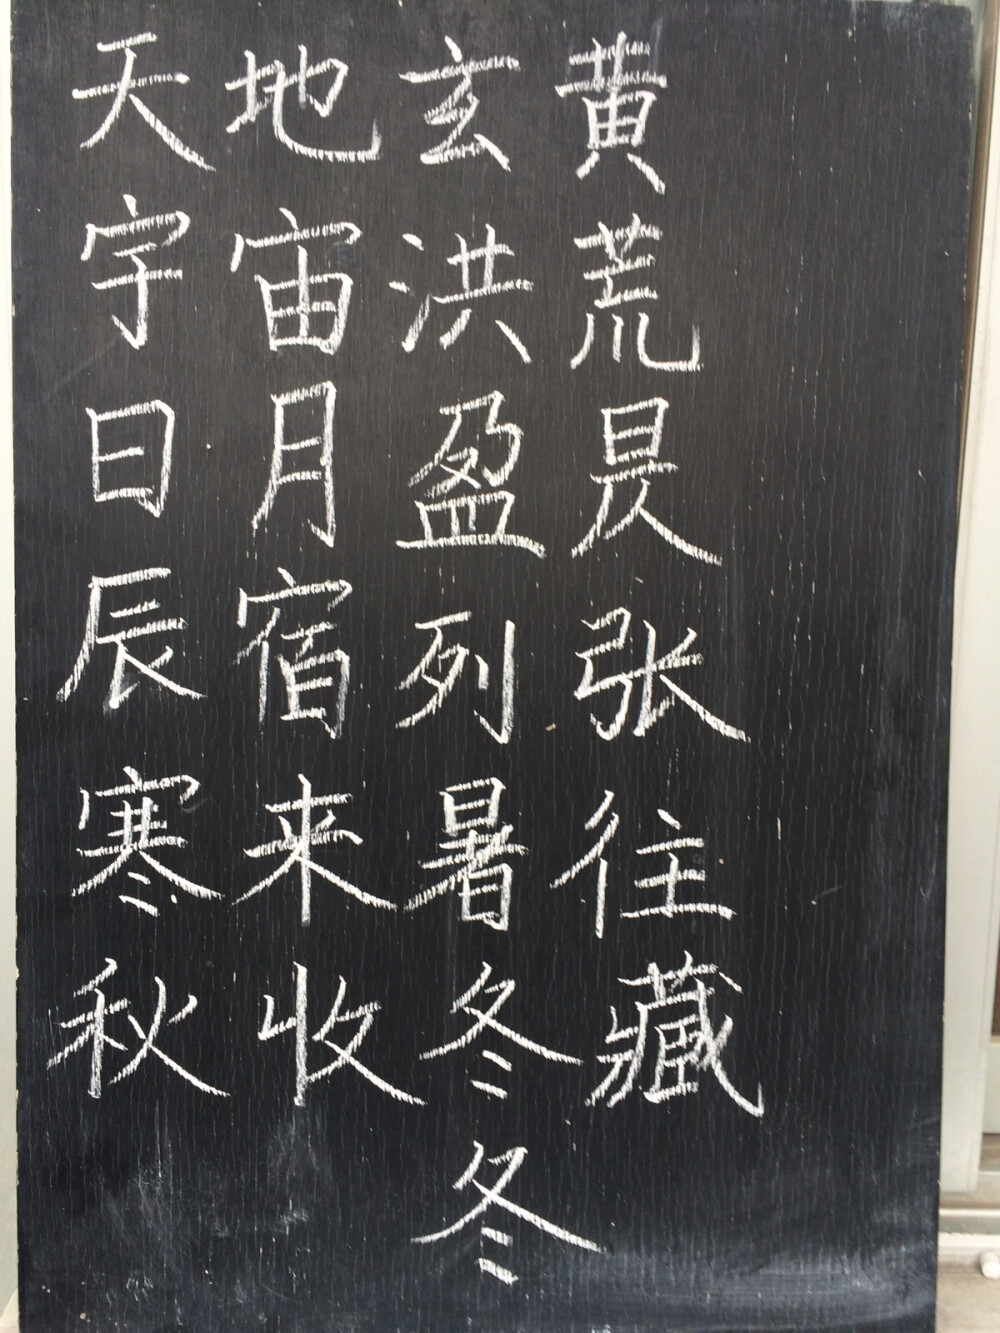 天地玄黄
宇宙洪荒
日月盈昃
辰宿列张
寒来暑往
秋收冬藏
冬